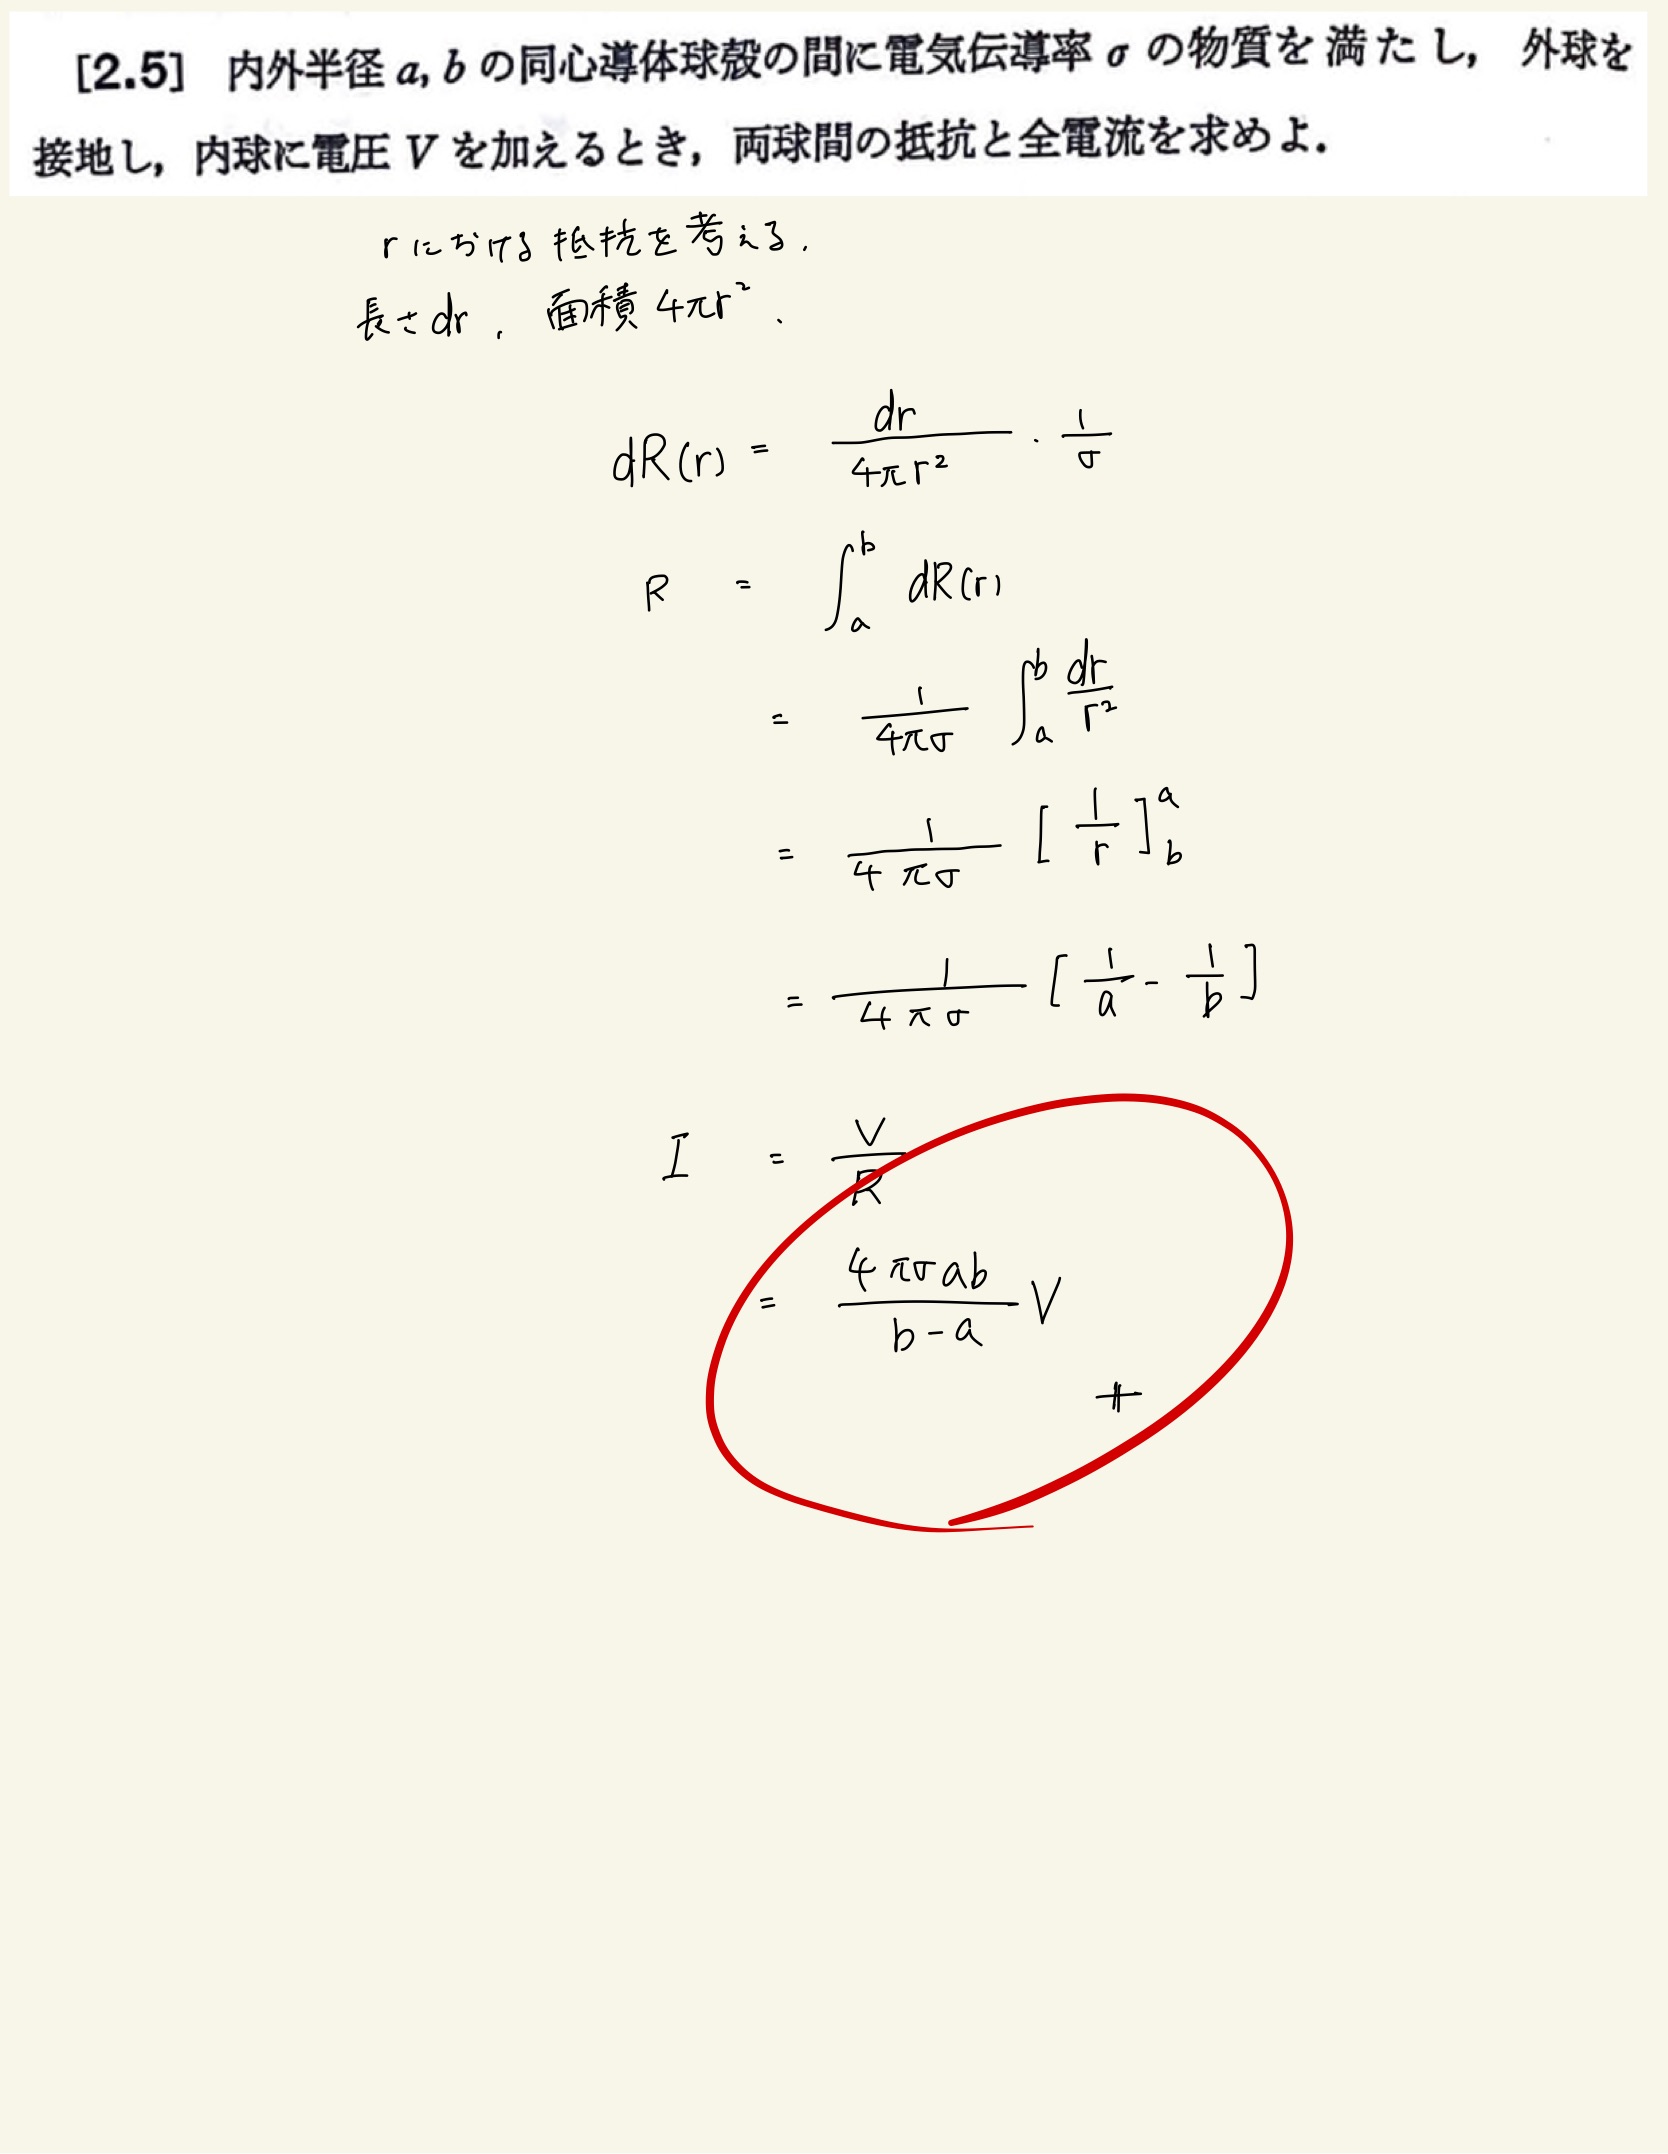 [2.5] 内外半径 a, b の同心導体球殻の間に電気伝導率 σ の物質を満たし, 外球を
接地し, 内球に電圧 V を加えるとき, 両球間の抵抗と全電流を求めよ.
rにおける抵抗を考える.
長さdr, 面積 4πr².
dR(r) = dr/4πr² · 1/σ
R = ∫_a^b dR(r)
= 1/4πσ ∫_a^b dr/r²
= 1/4πσ [1/r]_b^a
= 1/4πσ [1/a - 1/b]
I = V/R
= 4πσab/b-a V